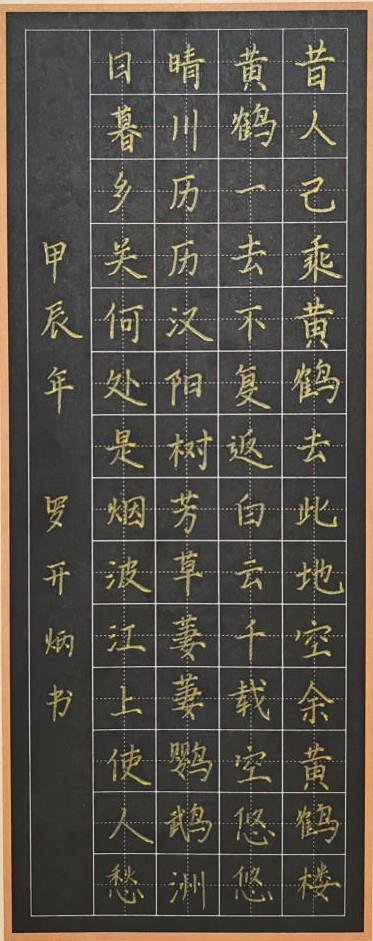 昔人己乘黄鹤去此地空余黄鹤楼
黄鹤一去不复返白云千载空悠悠
晴川历历汉阳树芳草萋萋鹦鹉洲
日暮乡关何处是烟波江上使人愁
甲辰年 罗开炳书